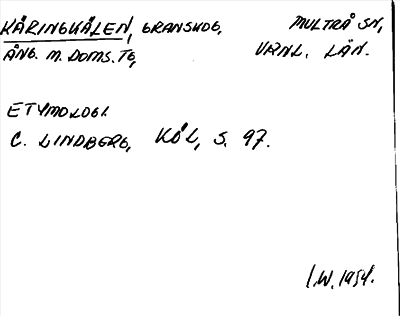 KÅRINGKÅLEN, GRANSKOG, MULTRÅ SN,
ÅNG. M. DOMS. TG, VRNL. LÄN.
ETYMOLOGI.
C. LINDBERG, KÖL, S. 97.
I.W. 1954.